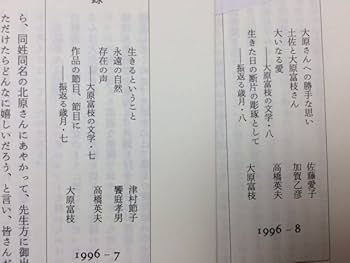 大原さんへの勝手な思い　佐藤愛子
土佐と大原富枝さん　加賀乙彦
大いなる愛
――大原富枝の文学・八　高橋英夫
生きた日の断片の彫琢として
――振返る歳月・八　大原富枝
1996－8
録
生きるということ　津村節子
永遠の自然　饗庭孝男
存在の声
――大原富枝の文学・七　高橋英夫
作品の節目、節目に
――振返る歳月・七　大原富枝
1996－7
ら、同姓同名の北原さんにあやかって、先生方に御出
ただけたらどんなに嬉しいだろう、と言い、皆さんだ